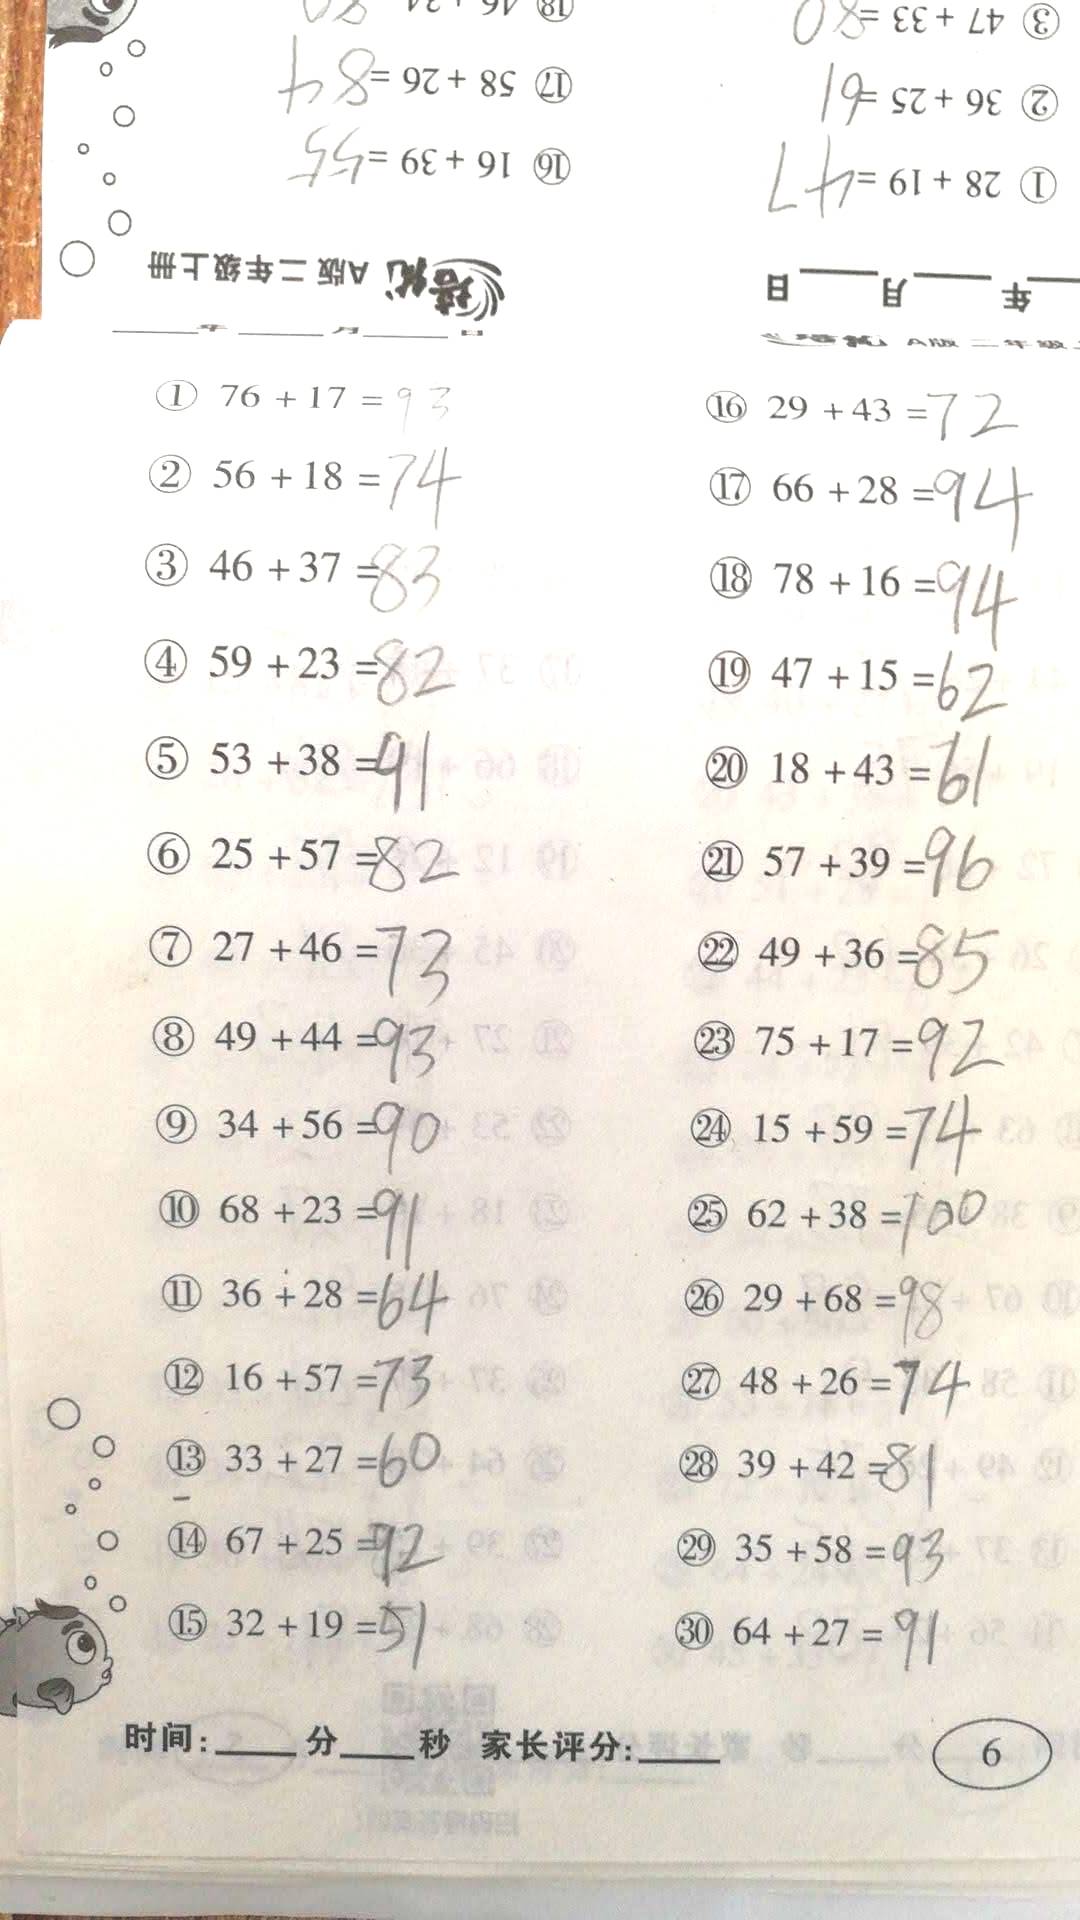 ① 28 + 19 = 47
② 36 + 25 = 61
③ 47 + 33 = 80
⑯ 16 + 39 = 55
⑰ 58 + 26 = 84
年 月 日
培优 A版 二年级上册
年 月 日
培优 A版 二年级
① 76 + 17 = 93
② 56 + 18 = 74
③ 46 + 37 = 83
④ 59 + 23 = 82
⑤ 53 + 38 = 91
⑥ 25 + 57 = 82
⑦ 27 + 46 = 73
⑧ 49 + 44 = 93
⑨ 34 + 56 = 90
⑩ 68 + 23 = 91
⑪ 36 + 28 = 64
⑫ 16 + 57 = 73
⑬ 33 + 27 = 60
⑭ 67 + 25 = 92
⑮ 32 + 19 = 51
⑯ 29 + 43 = 72
⑰ 66 + 28 = 94
⑱ 78 + 16 = 94
⑲ 47 + 15 = 62
⑳ 18 + 43 = 61
㉑ 57 + 39 = 96
㉒ 49 + 36 = 85
㉓ 75 + 17 = 92
㉔ 15 + 59 = 74
㉕ 62 + 38 = 100
㉖ 29 + 68 = 98
㉗ 48 + 26 = 74
㉘ 39 + 42 = 81
㉙ 35 + 58 = 93
㉚ 64 + 27 = 91
时间:____分____秒 家长评分:____
6